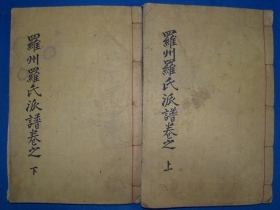 羅州羅氏派譜卷之
上
羅州羅氏派譜卷之
下